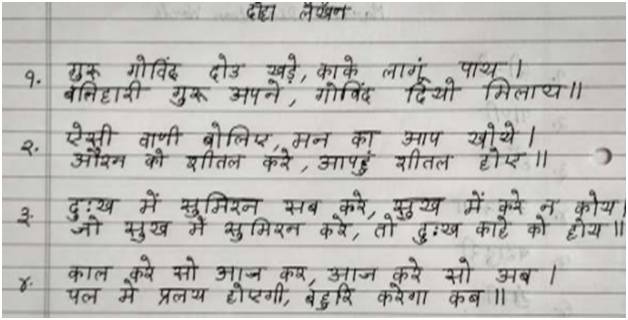 दोहा लेखन
१. गुरू गोविंद दोउ खड़े, काके लागूं पाय।
बलिहारी गुरू अपने, गोविंद दियो मिलाय॥
२. ऐसी वाणी बोलिए, मन का आप खोये।
औरन को शीतल करे, आपहुं शीतल होए॥
३. दुःख में सुमिरन सब करे, सुख में करे न कोय।
जो सुख में सुमिरन करे, तो दुःख काहे को होय॥
४. काल करे सो आज कर, आज करे सो अब।
पल में प्रलय होएगी, बहुरि करेगा कब॥